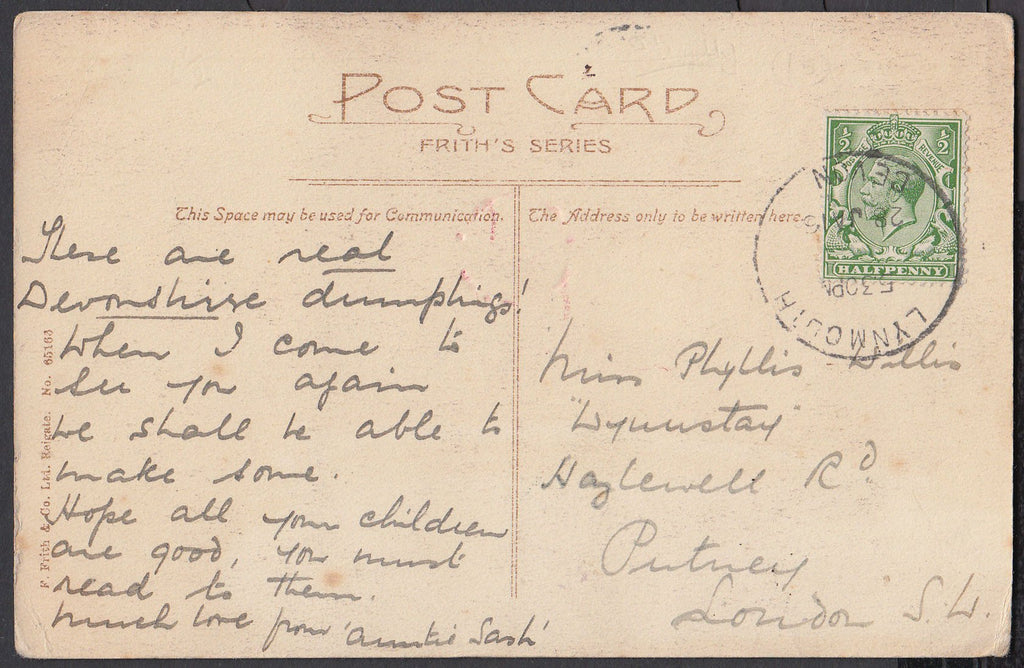 POST CARD
FRITH'S SERIES
This Space may be used for Communication.
The Address only to be written here.
Here are real
Devonshire dumplings!
When I come to
see you again
we shall be able to
make some.
Hope all your children
are good, you must
read to them.
Much love from 'Auntie Sash'
F. Frith & Co. Ltd. Reigate. No. 65163
½ ½
POSTAGE REVENUE
HALFPENNY
LYNMOUTH
DEVON
5.30PM
28 JA 16
Miss Phyllis Willis
"Wynnstay"
Hazlewell Rd
Putney
London S.W.